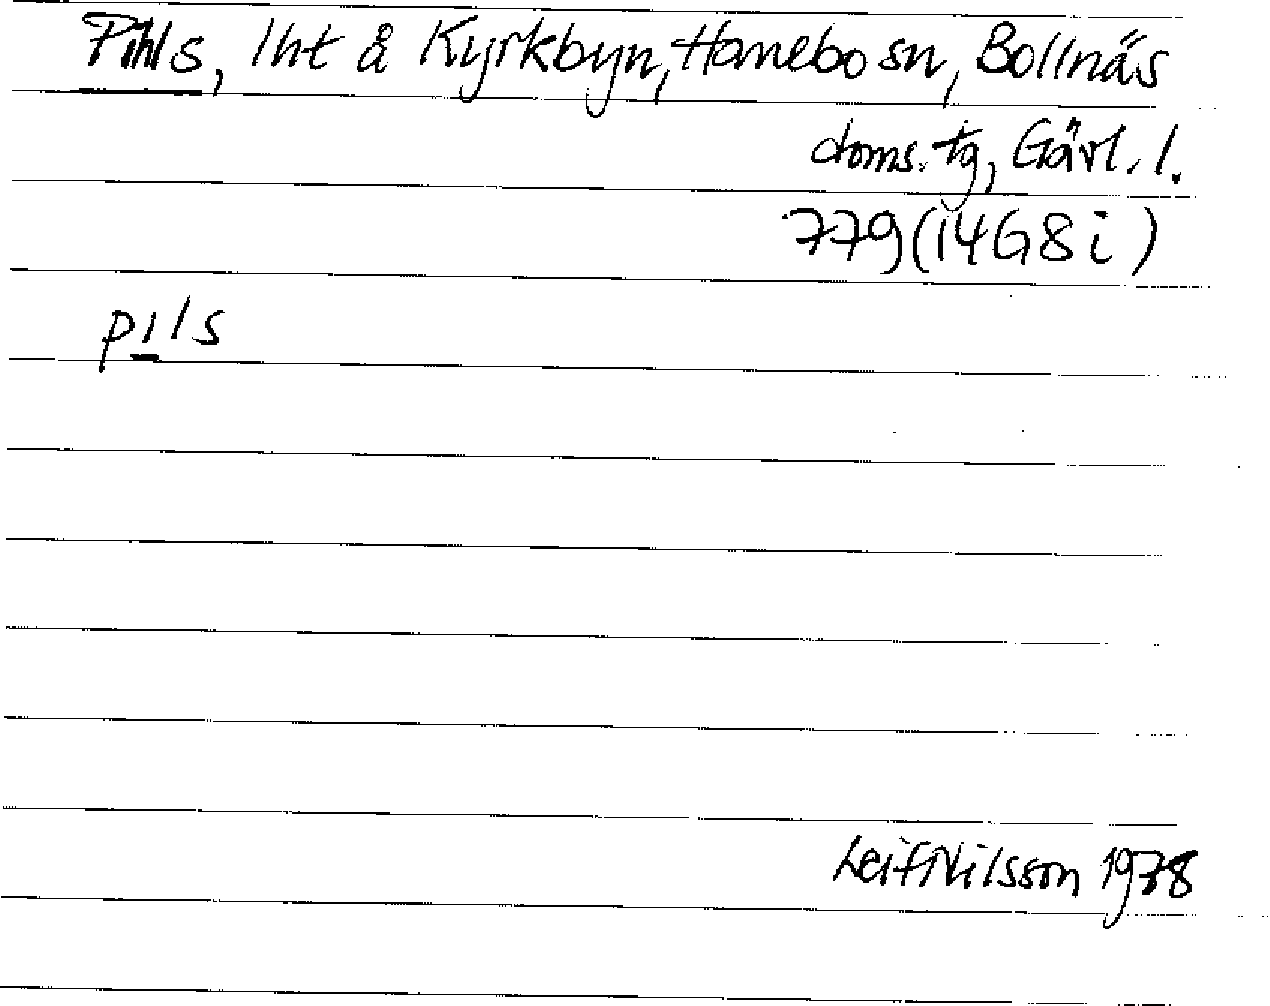 Pihls, lht å Kyrkbyn, Hanebo sn, Bollnäs
doms. tg, Gävl. l.
779 (14G8i)
pils
Leif Nilsson 1978